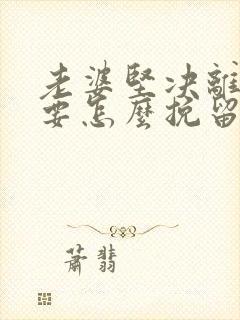 老婆堅决離
要怎麼挽留
蕭翡